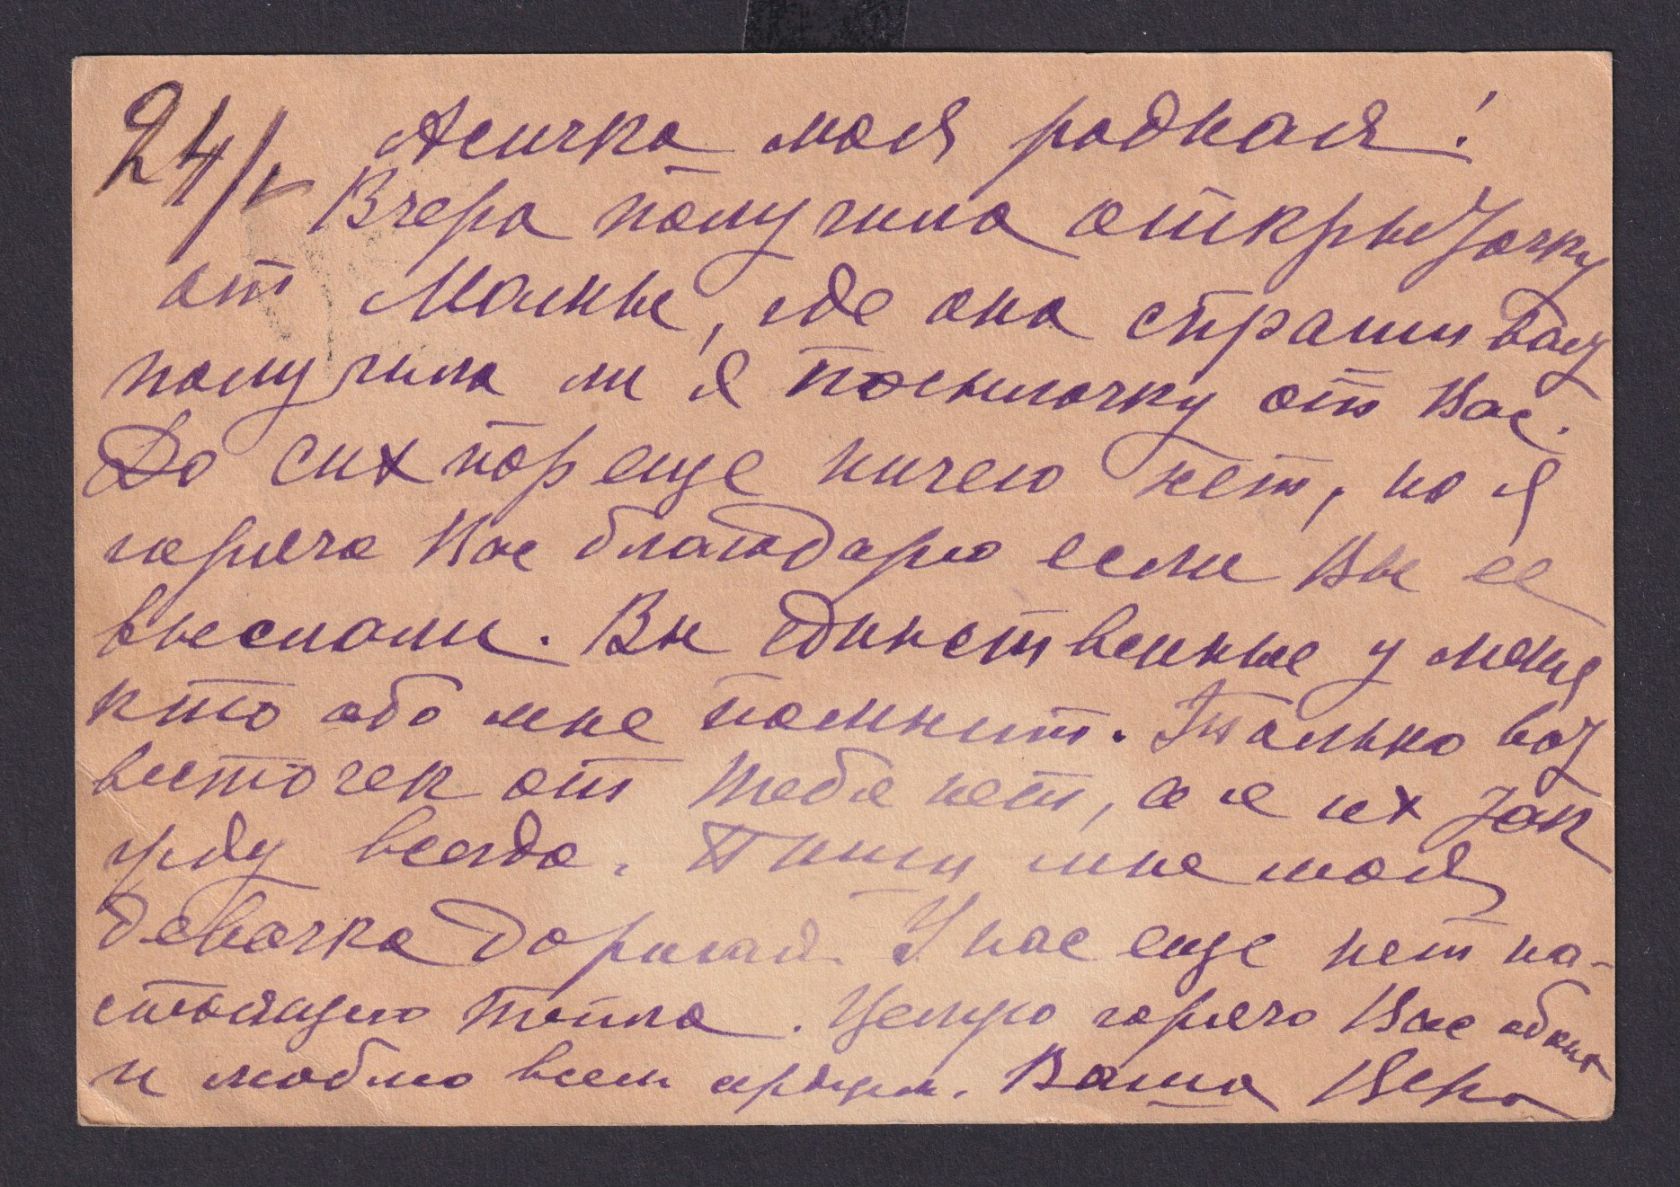 24/V Асичка моя родная!
Вчера получила открыточку
от Маины, где она спрашивает
получила ли я посылочку от Вас.
До сих пор еще ничего нет, но я
горячо Вас благодарю если Вы ее
выслали. Вы единственные у меня
кто обо мне помнит. Только вот
весточек от тебя нет, а я их так
жду всегда. Пиши мне моя
девочка дорогая. У нас еще нет на-
стоящего тепла. Целую горячо Вас обоих
и люблю всем сердцем. Ваша Вера